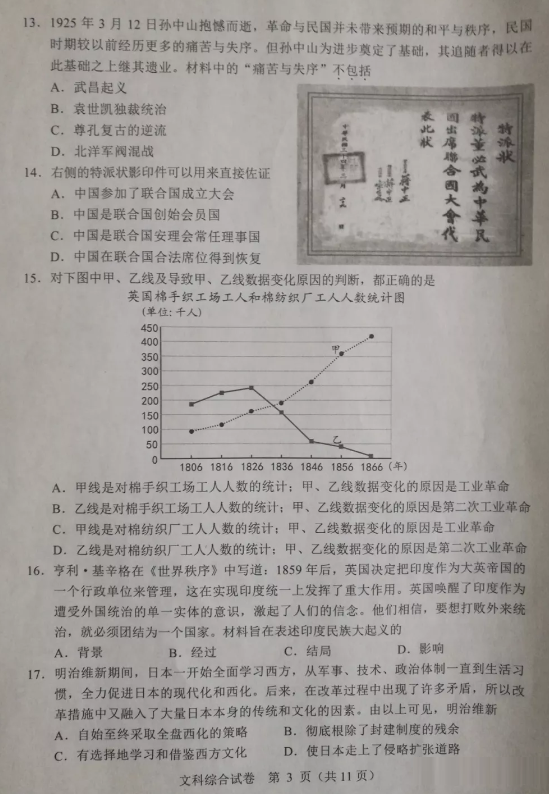 13. 1925 年 3 月 12 日孙中山抱憾而逝，革命与民国并未带来预期的和平与秩序，民国
时期较以前经历更多的痛苦与失序。但孙中山为进步奠定了基础，其追随者得以在
此基础之上继其遗业。材料中的“痛苦与失序”不包括
A. 武昌起义
B. 袁世凯独裁统治
C. 尊孔复古的逆流
D. 北洋军阀混战
特派状
特派董必武為中華民
國出席聯合國大會代
表此狀
蔣中正
14. 右侧的特派状影印件可以用来直接佐证
A. 中国参加了联合国成立大会
B. 中国是联合国创始会员国
C. 中国是联合国安理会常任理事国
D. 中国在联合国合法席位得到恢复
15. 对下图中甲、乙线及导致甲、乙线数据变化原因的判断，都正确的是
英国棉手织工场工人和棉纺织厂工人人数统计图
(单位:千人)
450
400
350
300
250
200
150
100
50
0
甲
乙
1806 1816 1826 1836 1846 1856 1866 (年)
A. 甲线是对棉手织工场工人人数的统计；甲、乙线数据变化的原因是工业革命
B. 乙线是对棉手织工场工人人数的统计；甲、乙线数据变化的原因是第二次工业革命
C. 甲线是对棉纺织厂工人人数的统计；甲、乙线数据变化的原因是工业革命
D. 乙线是对棉纺织厂工人人数的统计；甲、乙线数据变化的原因是第二次工业革命
16. 亨利·基辛格在《世界秩序》中写道：1859 年后，英国决定把印度作为大英帝国的
一个行政单位来管理，这在实现印度统一上发挥了重大作用。英国唤醒了印度作为
遭受外国统治的单一实体的意识，激起了人们的信念。他们相信，要想打败外来统
治，就必须团结为一个国家。材料旨在表述印度民族大起义的
A. 背景 B. 经过 C. 结局 D. 影响
17. 明治维新期间，日本一开始全面学习西方，从军事、技术、政治体制一直到生活习
惯，全力促进日本的现代化和西化。后来，在改革过程中出现了许多矛盾，所以改
革措施中又融入了大量日本本身的传统和文化的因素。由以上可见，明治维新
A. 自始至终采取全盘西化的策略 B. 彻底根除了封建制度的残余
C. 有选择地学习和借鉴西方文化 D. 使日本走上了侵略扩张道路
文科综合试卷 第 3 页（共 11 页）